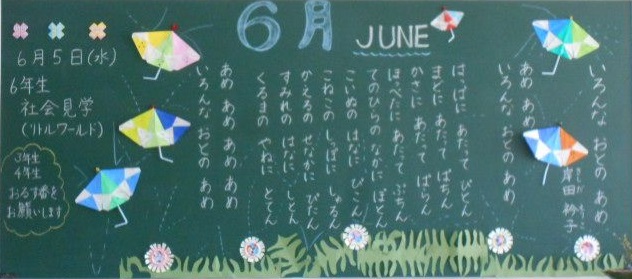 6月 JUNE
6月5日(水)
6年生
社会見学
(リトルワールド)
3年生
4年生
おるす番を
お願いします
いろんな おとの あめ
岸田 衿子
あめ あめ
いろんな おとの あめ
はっぱに あたって ぴとん
まどに あたって ぱちん
かさに あたって ぱらん
ほっぺたに あたって ぷちん
てのひらの なかに ぽとん
こいぬの はなに ぴこん
こねこの しっぽに しゅるん
かえるの せなかに ぴたん
すみれの はなに しとん
くるまの やねに とてん
あめ あめ あめ あめ
いろんな おとの あめ